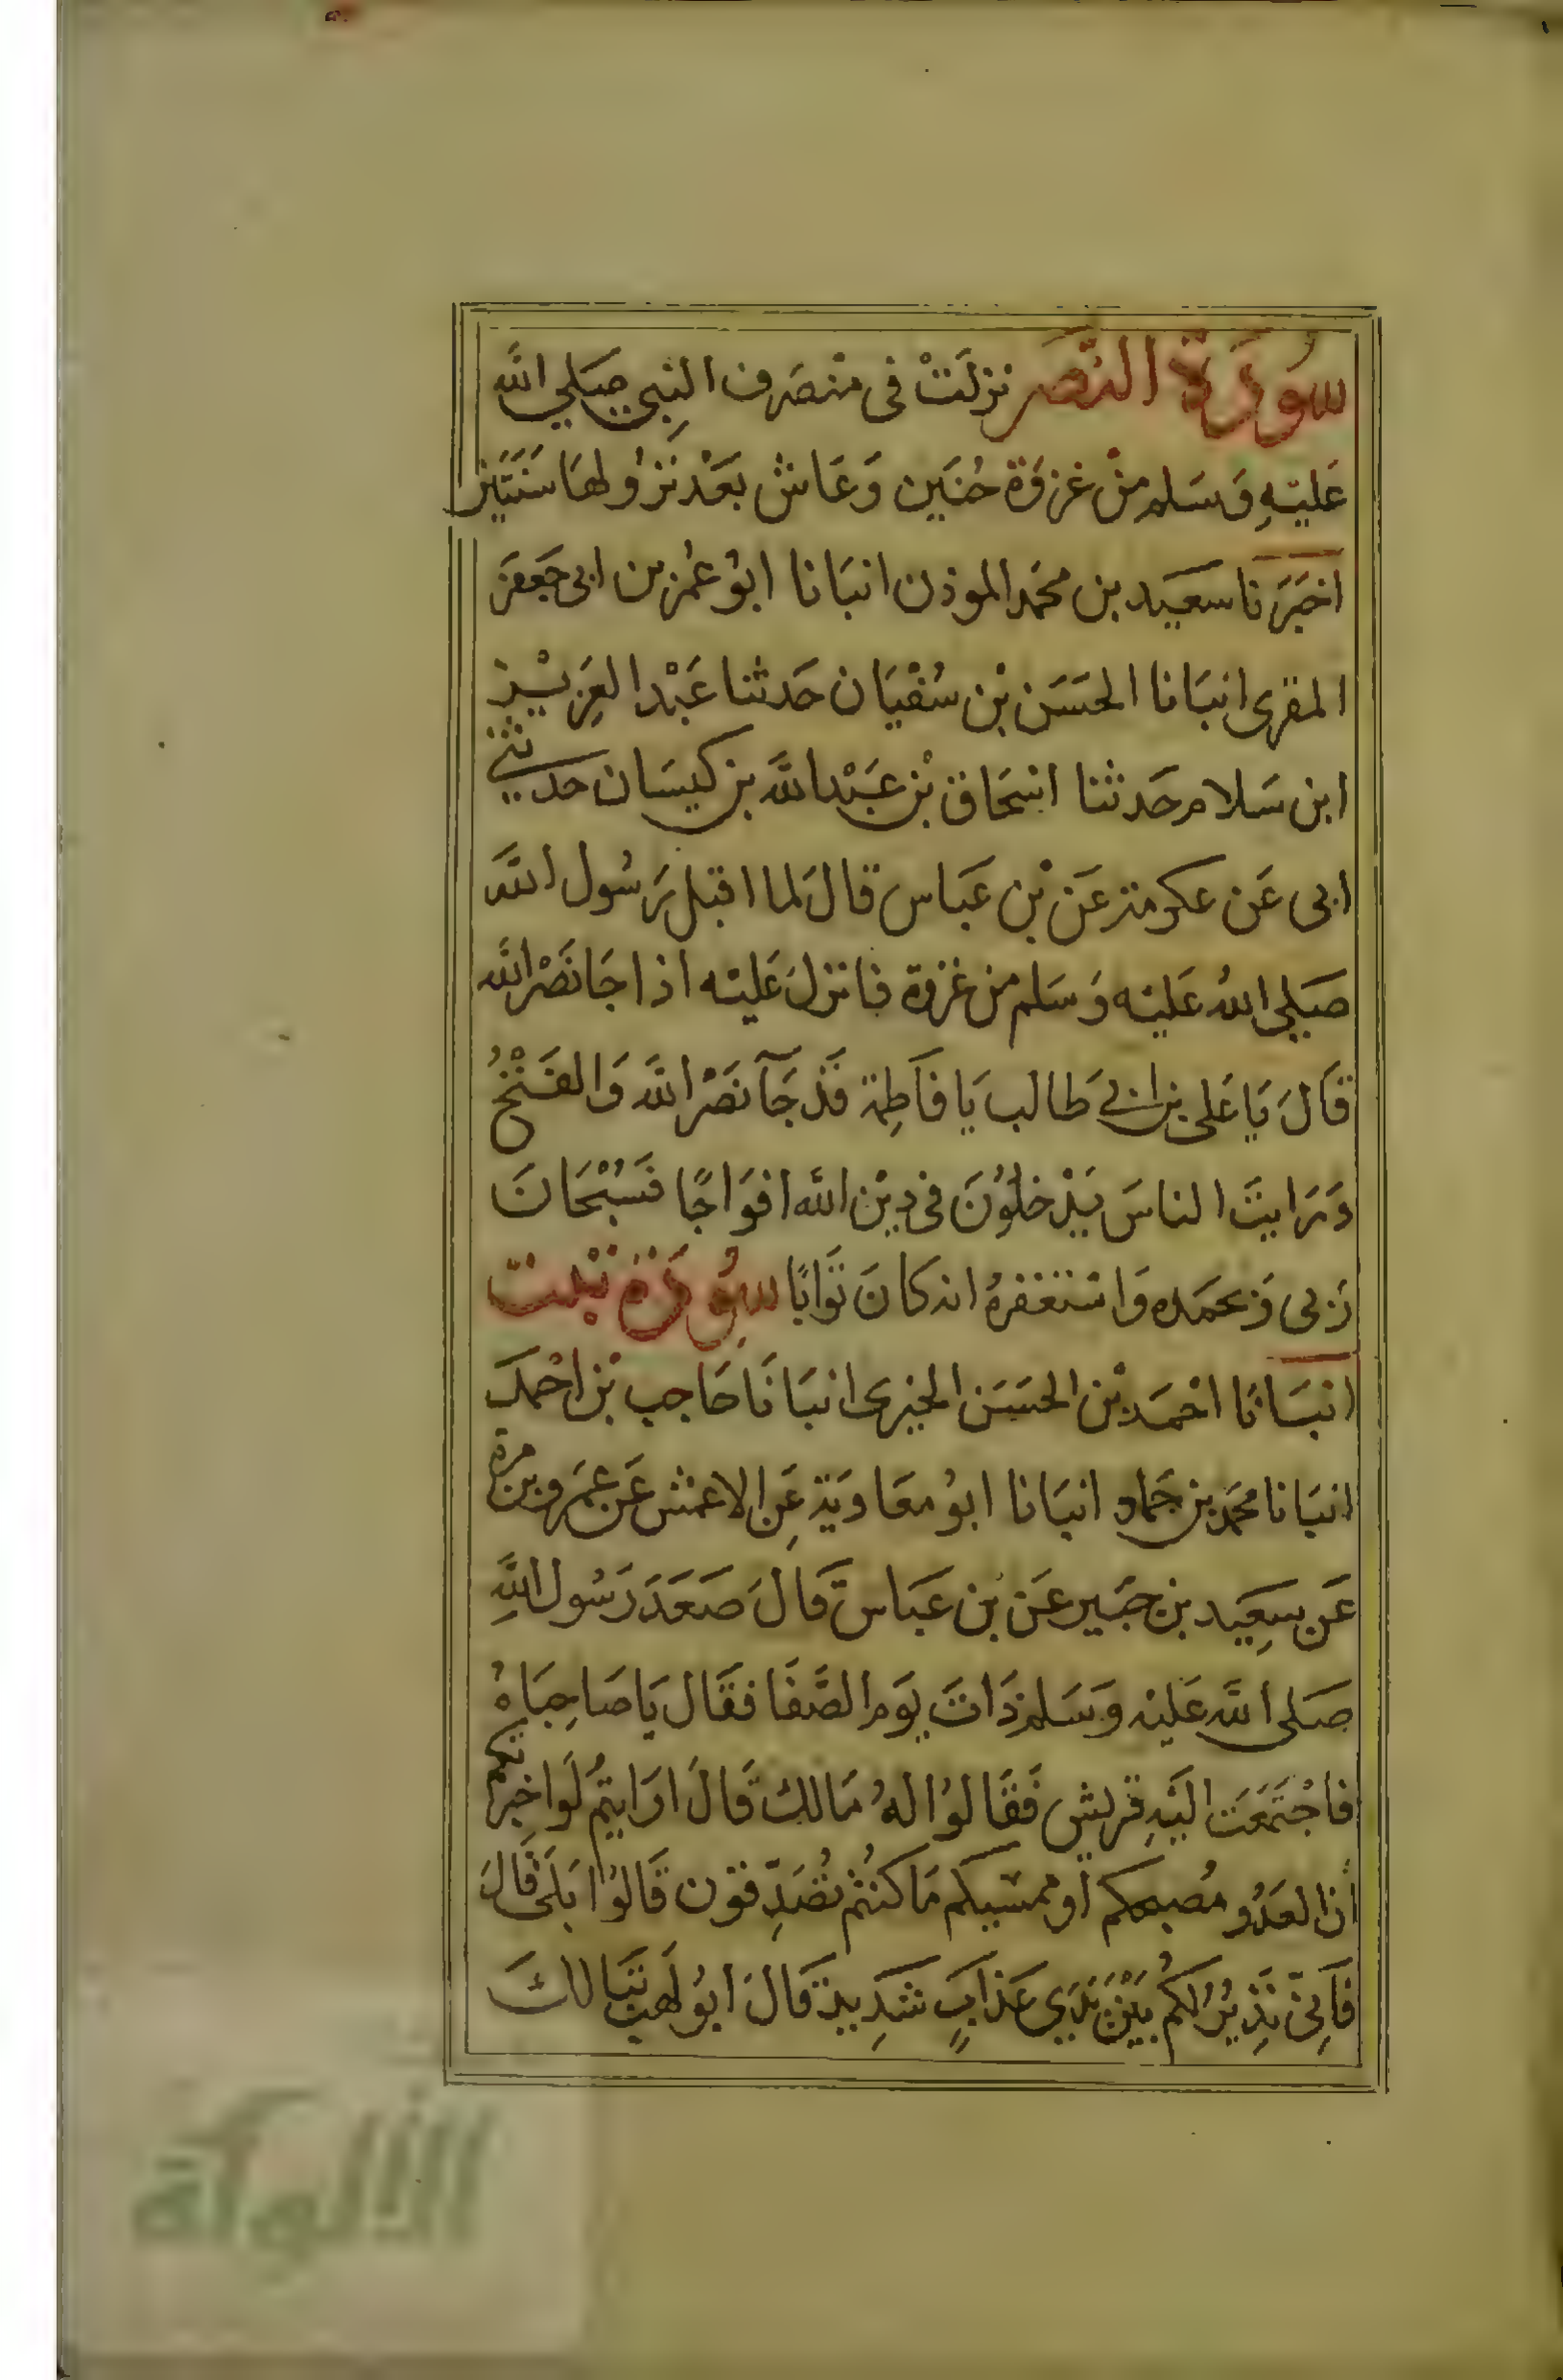 سُورَة النَّصر نزلَتْ فى منصَرف النبِي صَلي الله
عَليهِ وَسَلم منْ غزوَة حُنَين وَعَاش بَعْد نزُولهَا سَنَتَين
اخبَرَنا سعَيد بن محمد الموذن انبَانا ابوُ عمُر بن ابى جَعفَر
المقرى انبَانا الحسَن بْن سُفْيَان حَدثنا عَبْد العِزيْز
ابن سَلام حَدثنا اسحَاق بْن عَبْد الله بن كيسَان حدثنى
ابى عَن عكرمة عَن بْن عَباس قالَ لما اقبل رَسُول الله
صَلي اللهُ عَليْه وَسَلم من غزوة فانزلَ عَليْه اذا جَا نصْر الله
قَالَ يَا عَلى بن ابى طَالب يَا فاَطِمة قَدْ جَآ نصَرْ الله وَالفَتْحُ
وَرَايتَ الناسَ يَدْخلوُنَ فى دِيْن الله افوَاجًا فَسُبْحَانَ
رَبى وَبحمَده وَاستَغفرهُ انه كانَ تَوّابًا سُورَة تبّت
انبَانَا احْمَد بْن الحسَن الحيرى انبَانَا حَاجب بْن احْمَد
انبَانا محمَد بن حَماد انبَانا ابوُ معَاويَة عَنِ الاعمش عَن عمَرو بن مرة
عَن سِعَيد بن جبَير عَن بن عَبَاس قَالَ صَعَدَ رَسُول اللهِ
صَلى اللهَ عَليْه وَسَلم ذَاتَ يَوم الصَّفَا فقَال يَا صَاحِبَاهُ
فاجْتَمعَت اليَهِ قريش فَقَالوُا لهُ مَالك قَالَ ارَايتمُ لَوا خبرتكم
أنّ العَدُو مُصبحكم أو ممسيكم مَا كنُتُم تُصَدِّقون قَالوُا بَلىَ قَالَ
فَاِنِّى نَذِيرٌ لكمُ بَيْنَ يَدَى عَذَابٍ شَدِيد قَالَ ابوُ لَهب تبَا لكَ
الألوكة